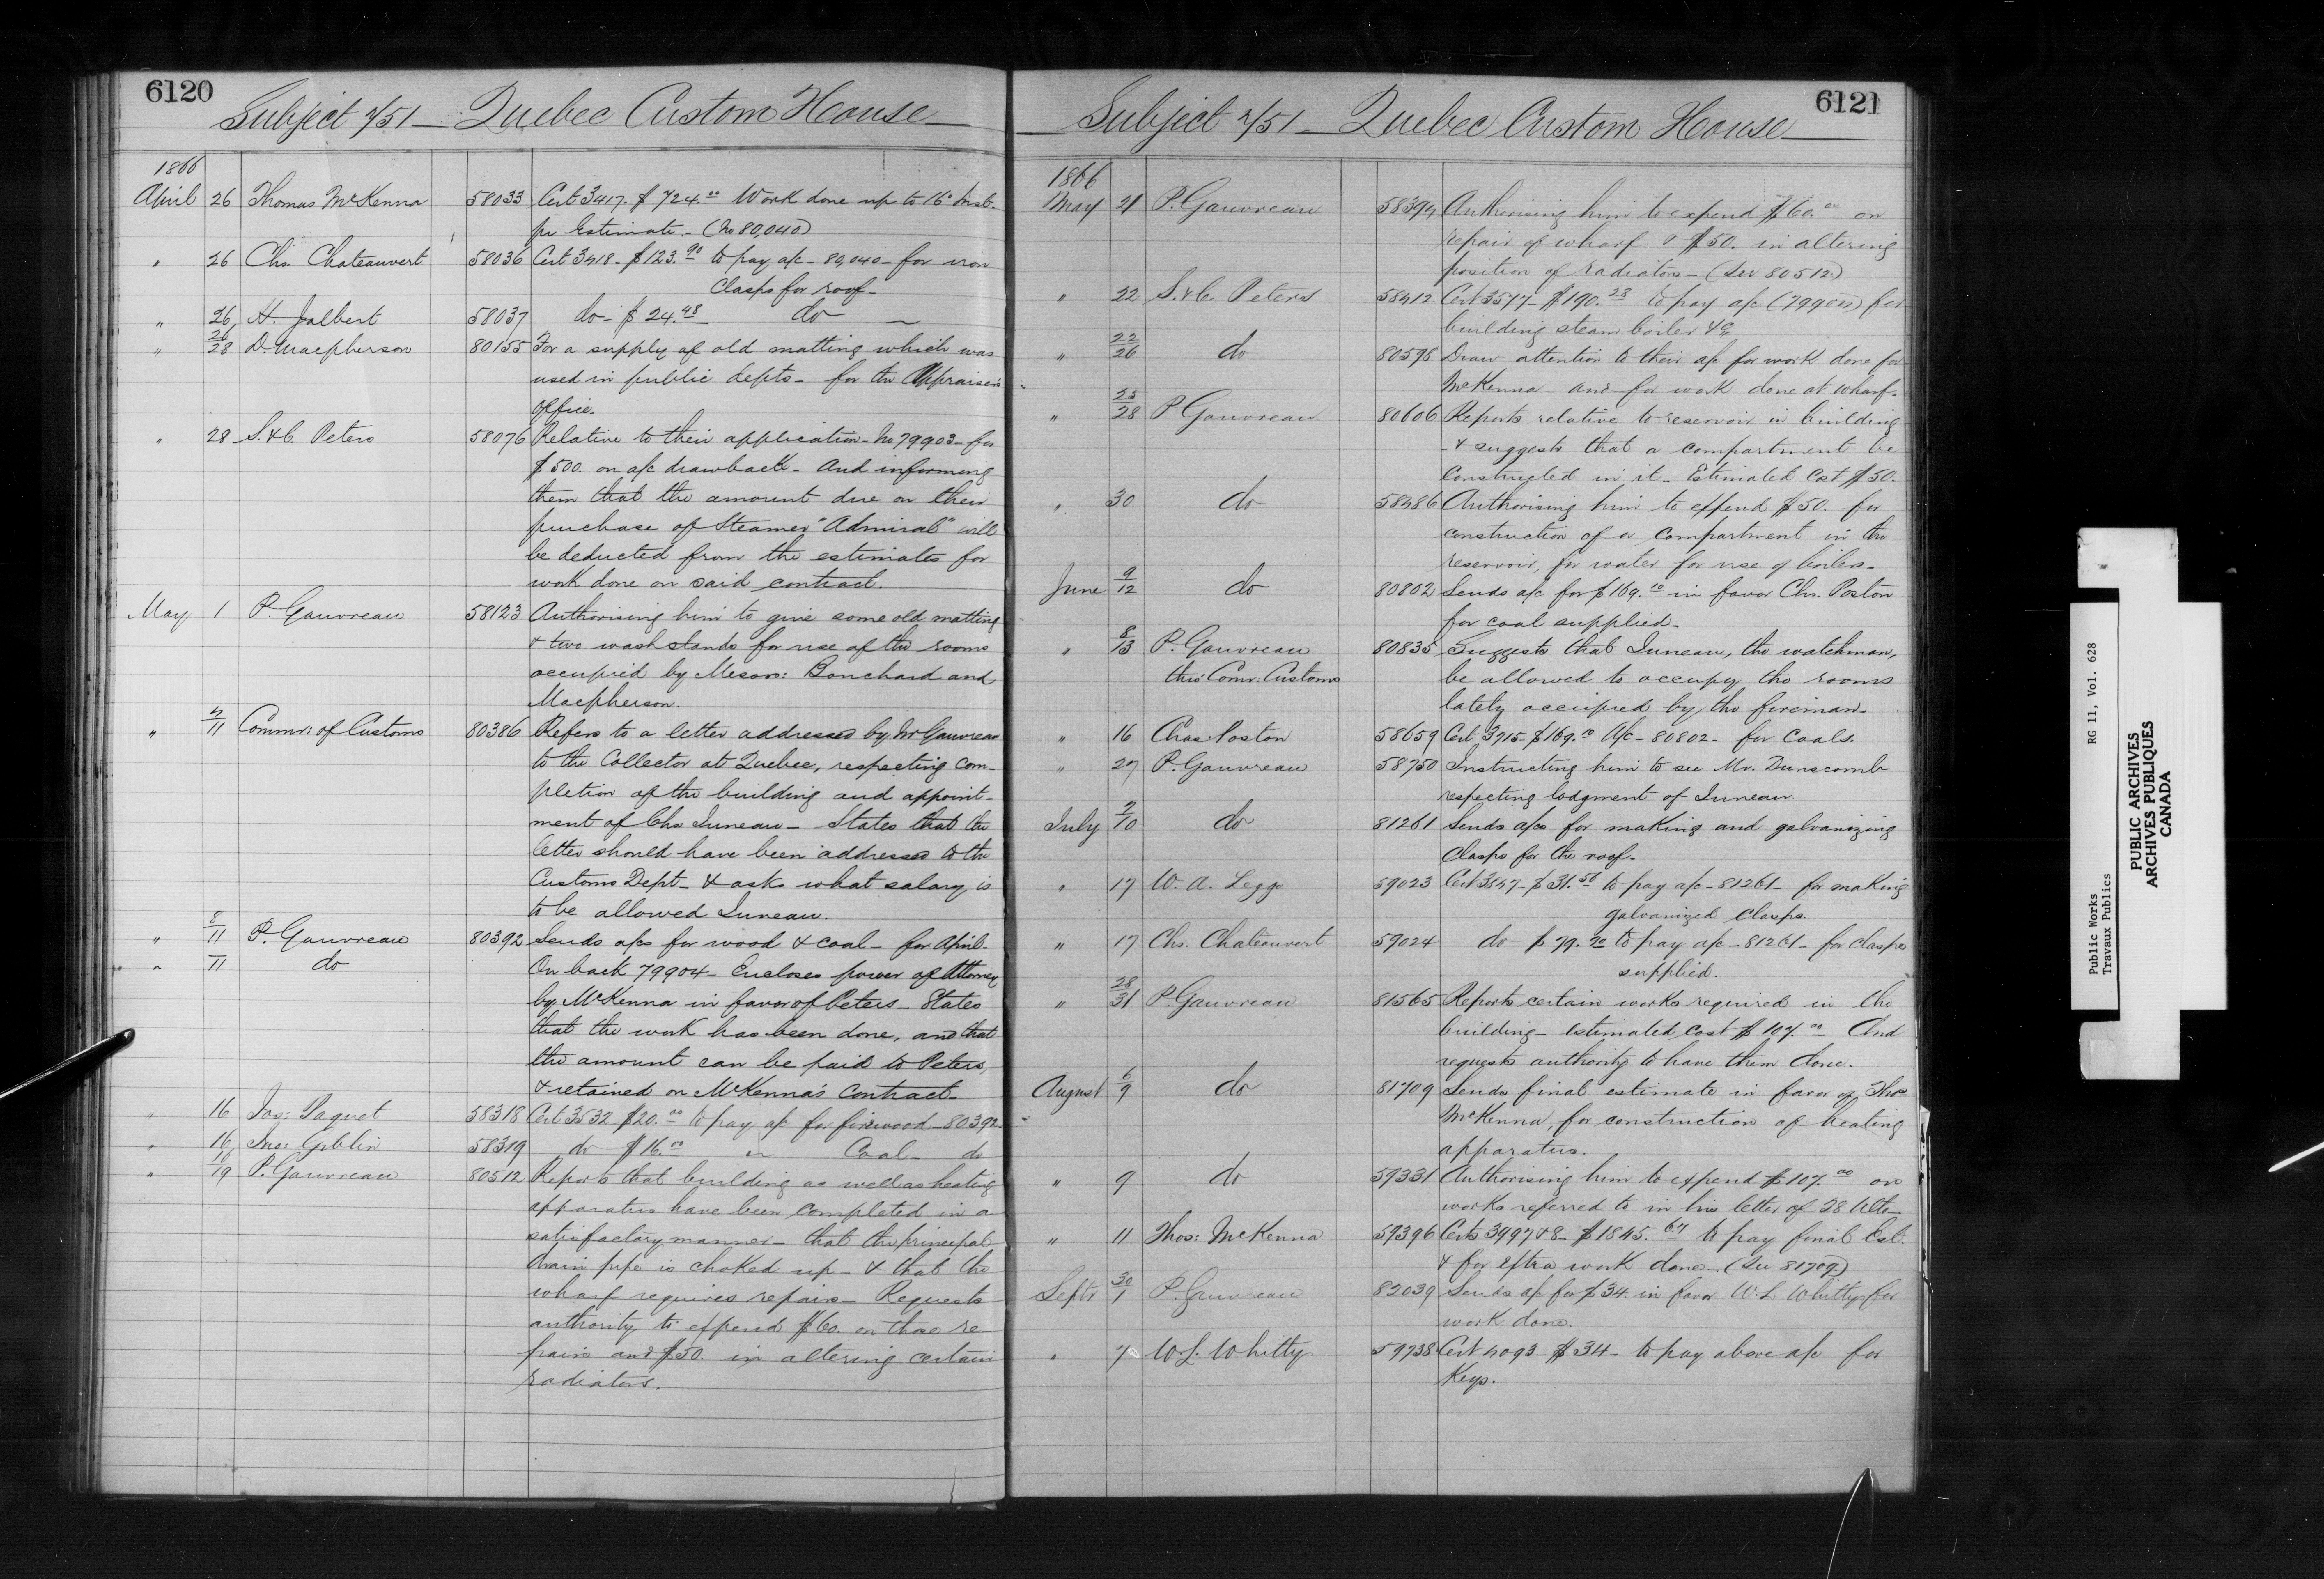 6120
Subject 7/51 — Quebec Custom House
1866
April 26 Thomas McKenna 58033 Cert 3417. $724.00 Work done up to 16th Inst.
pr Estimate. — (No 80,040)
" 26 Chs. Chateauvert 58036 Cert 3418 — $123.90 to pay a/c — 80,040 — for iron
Clasps for roof —
" 26 H. Jalbert 58037 do — $24.48 — do —
" 26/28 D. Macpherson 80155 For a supply of old matting which was
used in public depts — for the Appraiser's
Office.
" 28 S. & C. Peters 58076 Relative to their application — No 79903 — for
$500. on a/c drawback — And informing
them that the amount due on their
purchase of Steamer "Admiral" will
be deducted from the estimates for
work done on said contract.
May 1 P. Gauvreau 58123 Authorising him to give some old matting
& two wash stands for use of the rooms
occupied by Messrs: Bouchard and
Macpherson.
" 7/11 Commr: of Customs 80386 Refers to a letter addressed by Mr Gauvreau
to the Collector at Quebec, respecting com-
pletion of the building and appoint-
ment of Chs Juneau — States that the
letter should have been addressed to the
Customs Dept — & asks what salary is
to be allowed Juneau.
" 8/11 P. Gauvreau 80392 Sends a/cs for wood & coal — for April.
" 11 do On back 79904 — Encloses power of Attorney
by McKenna in favor of Peters — States
that the work has been done, and that
the amount can be paid to Peters,
& retained on McKenna's Contract —
" 16 Jos: Paquet 58318 Cert 3532 $20.00 to pay a/c for firewood — 80392.
" 16 Jno: Giblin 58319 do $16.00 " Coal — do
" 16/19 P. Gauvreau 80512 Reports that building as well as heating
apparatus have been completed in a
satisfactory manner — that the principal
drain pipe is choked up — & that the
wharf requires repairs — Requests
authority to expend $60. on those re-
pairs and $50. in altering certain
radiators.
6121
Subject 7/51 — Quebec Custom House
1866
May 21 P. Gauvreau 58394 Authorising him to expend $60.00 on
repair of wharf & $50. in altering
position of radiators — (See 80512)
" 22 S. & C. Peters 58412 Cert 3577 — $190.28 to pay a/c for
building steam boiler &c
" 22/26 do 80598 Draw attention to their a/c for work done for
McKenna — and for work done at wharf.
" 25/28 P. Gauvreau 80606 Reports relative to reservoir in building
— & suggests that a compartment be
constructed in it — Estimated cost $50.
" 30 do 58486 Authorising him to expend $50. for
construction of a compartment in the
reservoir, for water for use of boilers —
June 9/12 do 80802 Sends a/c for $169.10 in favor Chs. Poston
for coal supplied —
" 8/13 P. Gauvreau 80835 Suggests that Juneau, the watchman,
thro' Comr. Customs be allowed to occupy the rooms
lately occupied by the fireman —
" 16 Chas Poston 58659 Cert 3715 — $169.10 A/c — 80802 — for Coals.
" 27 P. Gauvreau 58750 Instructing him to see Mr. Dunscomb
respecting lodgment of Juneau.
July 7/10 do 81261 Sends a/cs for making and galvanizing
Clasps for the roof —
" 17 W. A. Leggo 59023 Cert 3847 — $31.50 to pay a/c — 81261 — for making
galvanized Clasps.
" 17 Chs. Chateauvert 59024 do $79.90 to pay a/c — 81261 — for clasps
supplied.
" 28/31 P. Gauvreau 81565 Reports certain works required in the
building — estimated cost $107.00 And
requests authority to have them done.
August 6/9 do 81709 Sends final estimate in favor of Thos
McKenna, for construction of heating
apparatus.
" 9 do 59331 Authorising him to expend $107.00 on
works referred to in his letter of 28 Ulto
" 11 Thos: McKenna 59396 Certs 3997 & 8 — $1845.67 to pay final Est.
& for extra work done — (See 81709.)
Septr 30/1 P. Gauvreau 82039 Sends a/c for $34. in favor W. L. Whitty for
work done.
" 7 W. L. Whitty 59738 Cert 4093 — $34 — to pay above a/c for
Keys.
Public Works RG 11, Vol. 628
Travaux Publics
PUBLIC ARCHIVES
ARCHIVES PUBLIQUES
CANADA